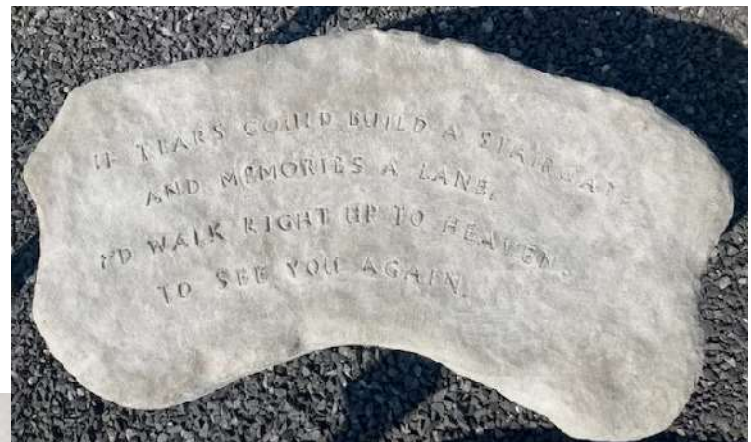 IF TEARS COULD BUILD A STAIRWAY,
AND MEMORIES A LANE,
I'D WALK RIGHT UP TO HEAVEN,
TO SEE YOU AGAIN.